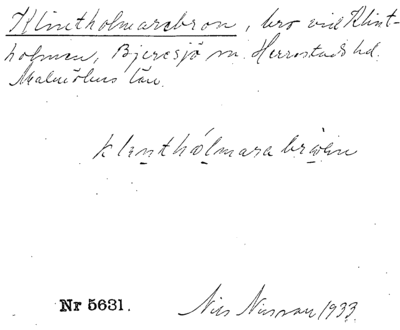 Klintholmarebron, bro vid Klint-
holmen, Bjeresjö sn. Herrestads hd.
Malmöhus län.
klenthólmarabröen
Nr 5631. Nils Nilsson 1933.